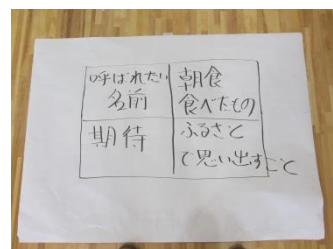 呼ばれたい
名前
朝食
食べたもの
期待
ふるさと
で思い出すこと